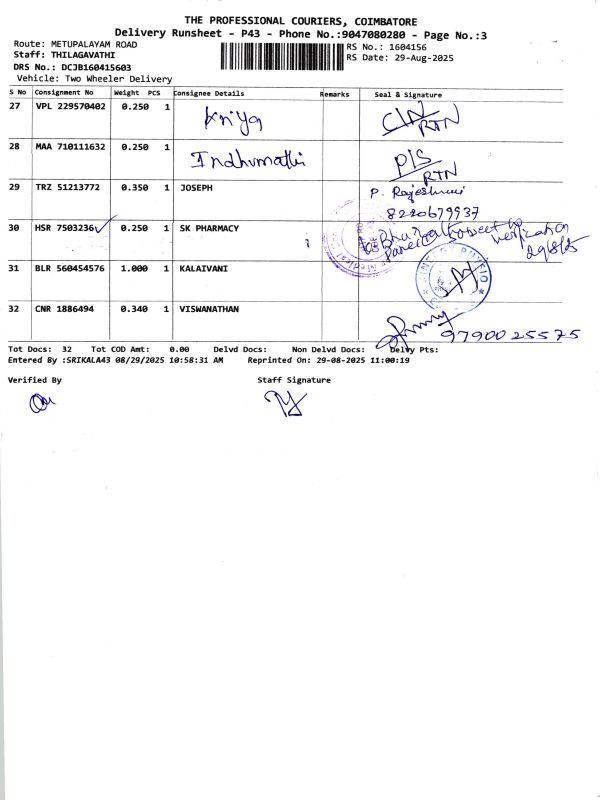 THE PROFESSIONAL COURIERS, COIMBATORE
Delivery Runsheet - P43 - Phone No.:9047080280 - Page No.:3
Route: METUPALAYAM ROAD
Staff: THILAGAVATHI
DRS No.: DCJB160415603
Vehicle: Two Wheeler Delivery
RS No.: 1604156
RS Date: 29-Aug-2025
S No Consignment No Weight PCS Consignee Details Remarks Seal & Signature
27 VPL 229570402 0.250 1 Kriya CIN/RTN
28 MAA 710111632 0.250 1 Indhumathi PIS/RTN
29 TRZ 51213772 0.350 1 JOSEPH P. Rajeshwari
8220679937
30 HSR 7503236 0.250 1 SK PHARMACY
verification
29/8/25
31 BLR 560454576 1.000 1 KALAIVANI
32 CNR 1886494 0.340 1 VISWANATHAN
9790025575
Tot Docs: 32 Tot COD Amt: 0.00 Delvd Docs: Non Delvd Docs: Delvy Pts:
Entered By :SRIKALA43 08/29/2025 10:58:31 AM Reprinted On: 29-08-2025 11:00:19
Verified By Staff Signature